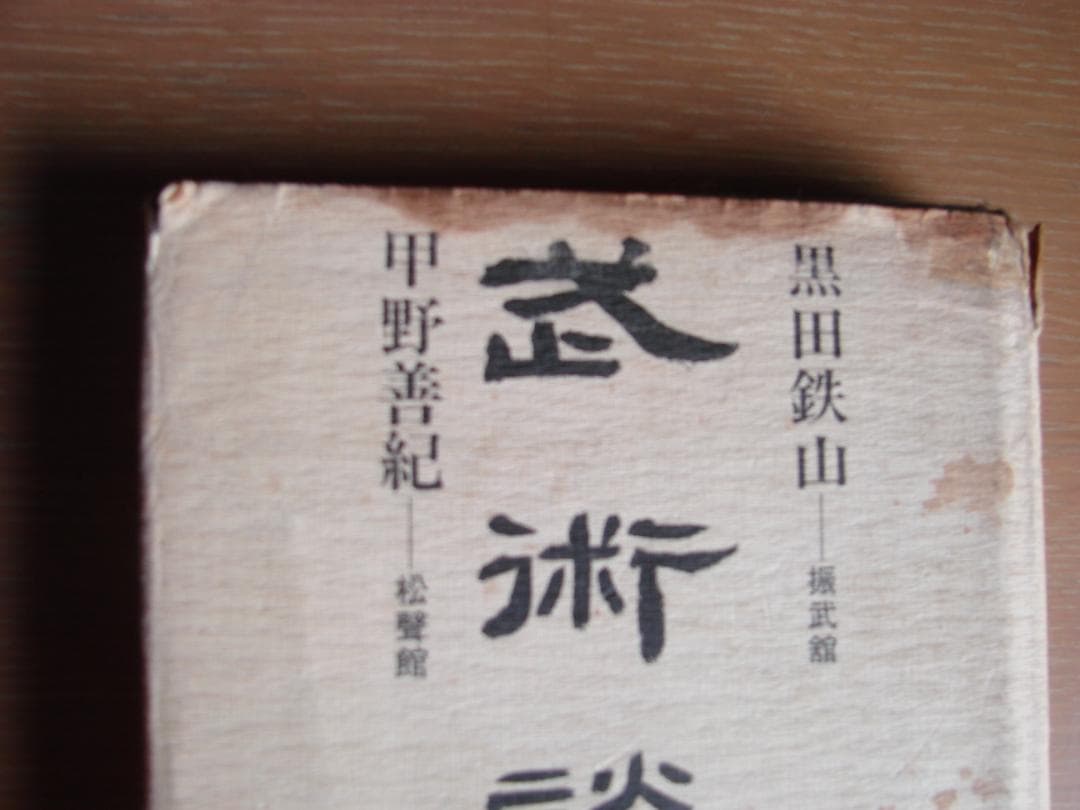 黒田鉄山―振武舘
武術談
甲野善紀―松聲館